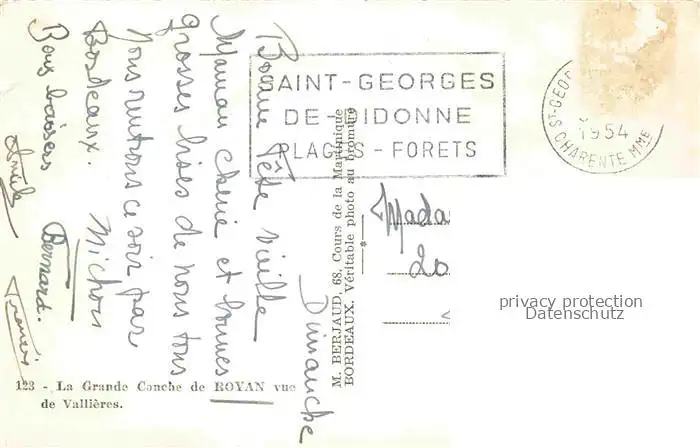 Dimanche
Bonne Fête vieille
Maman chérie et bonnes
grosses bises de nous tous
Nous rentrons ce soir par
Bordeaux. Michou
Bons baisers Bernard.
SAINT-GEORGES
DE-DIDONNE
PLAGES - FORETS
ST-GEOR
1954
CHARENTE MME
M. BERJAUD, 68, Cours de la Martinique
BORDEAUX. Véritable photo au bromure
Mada
privacy protection
Datenschutz
123 - La Grande Conche de ROYAN vue
de Vallières.